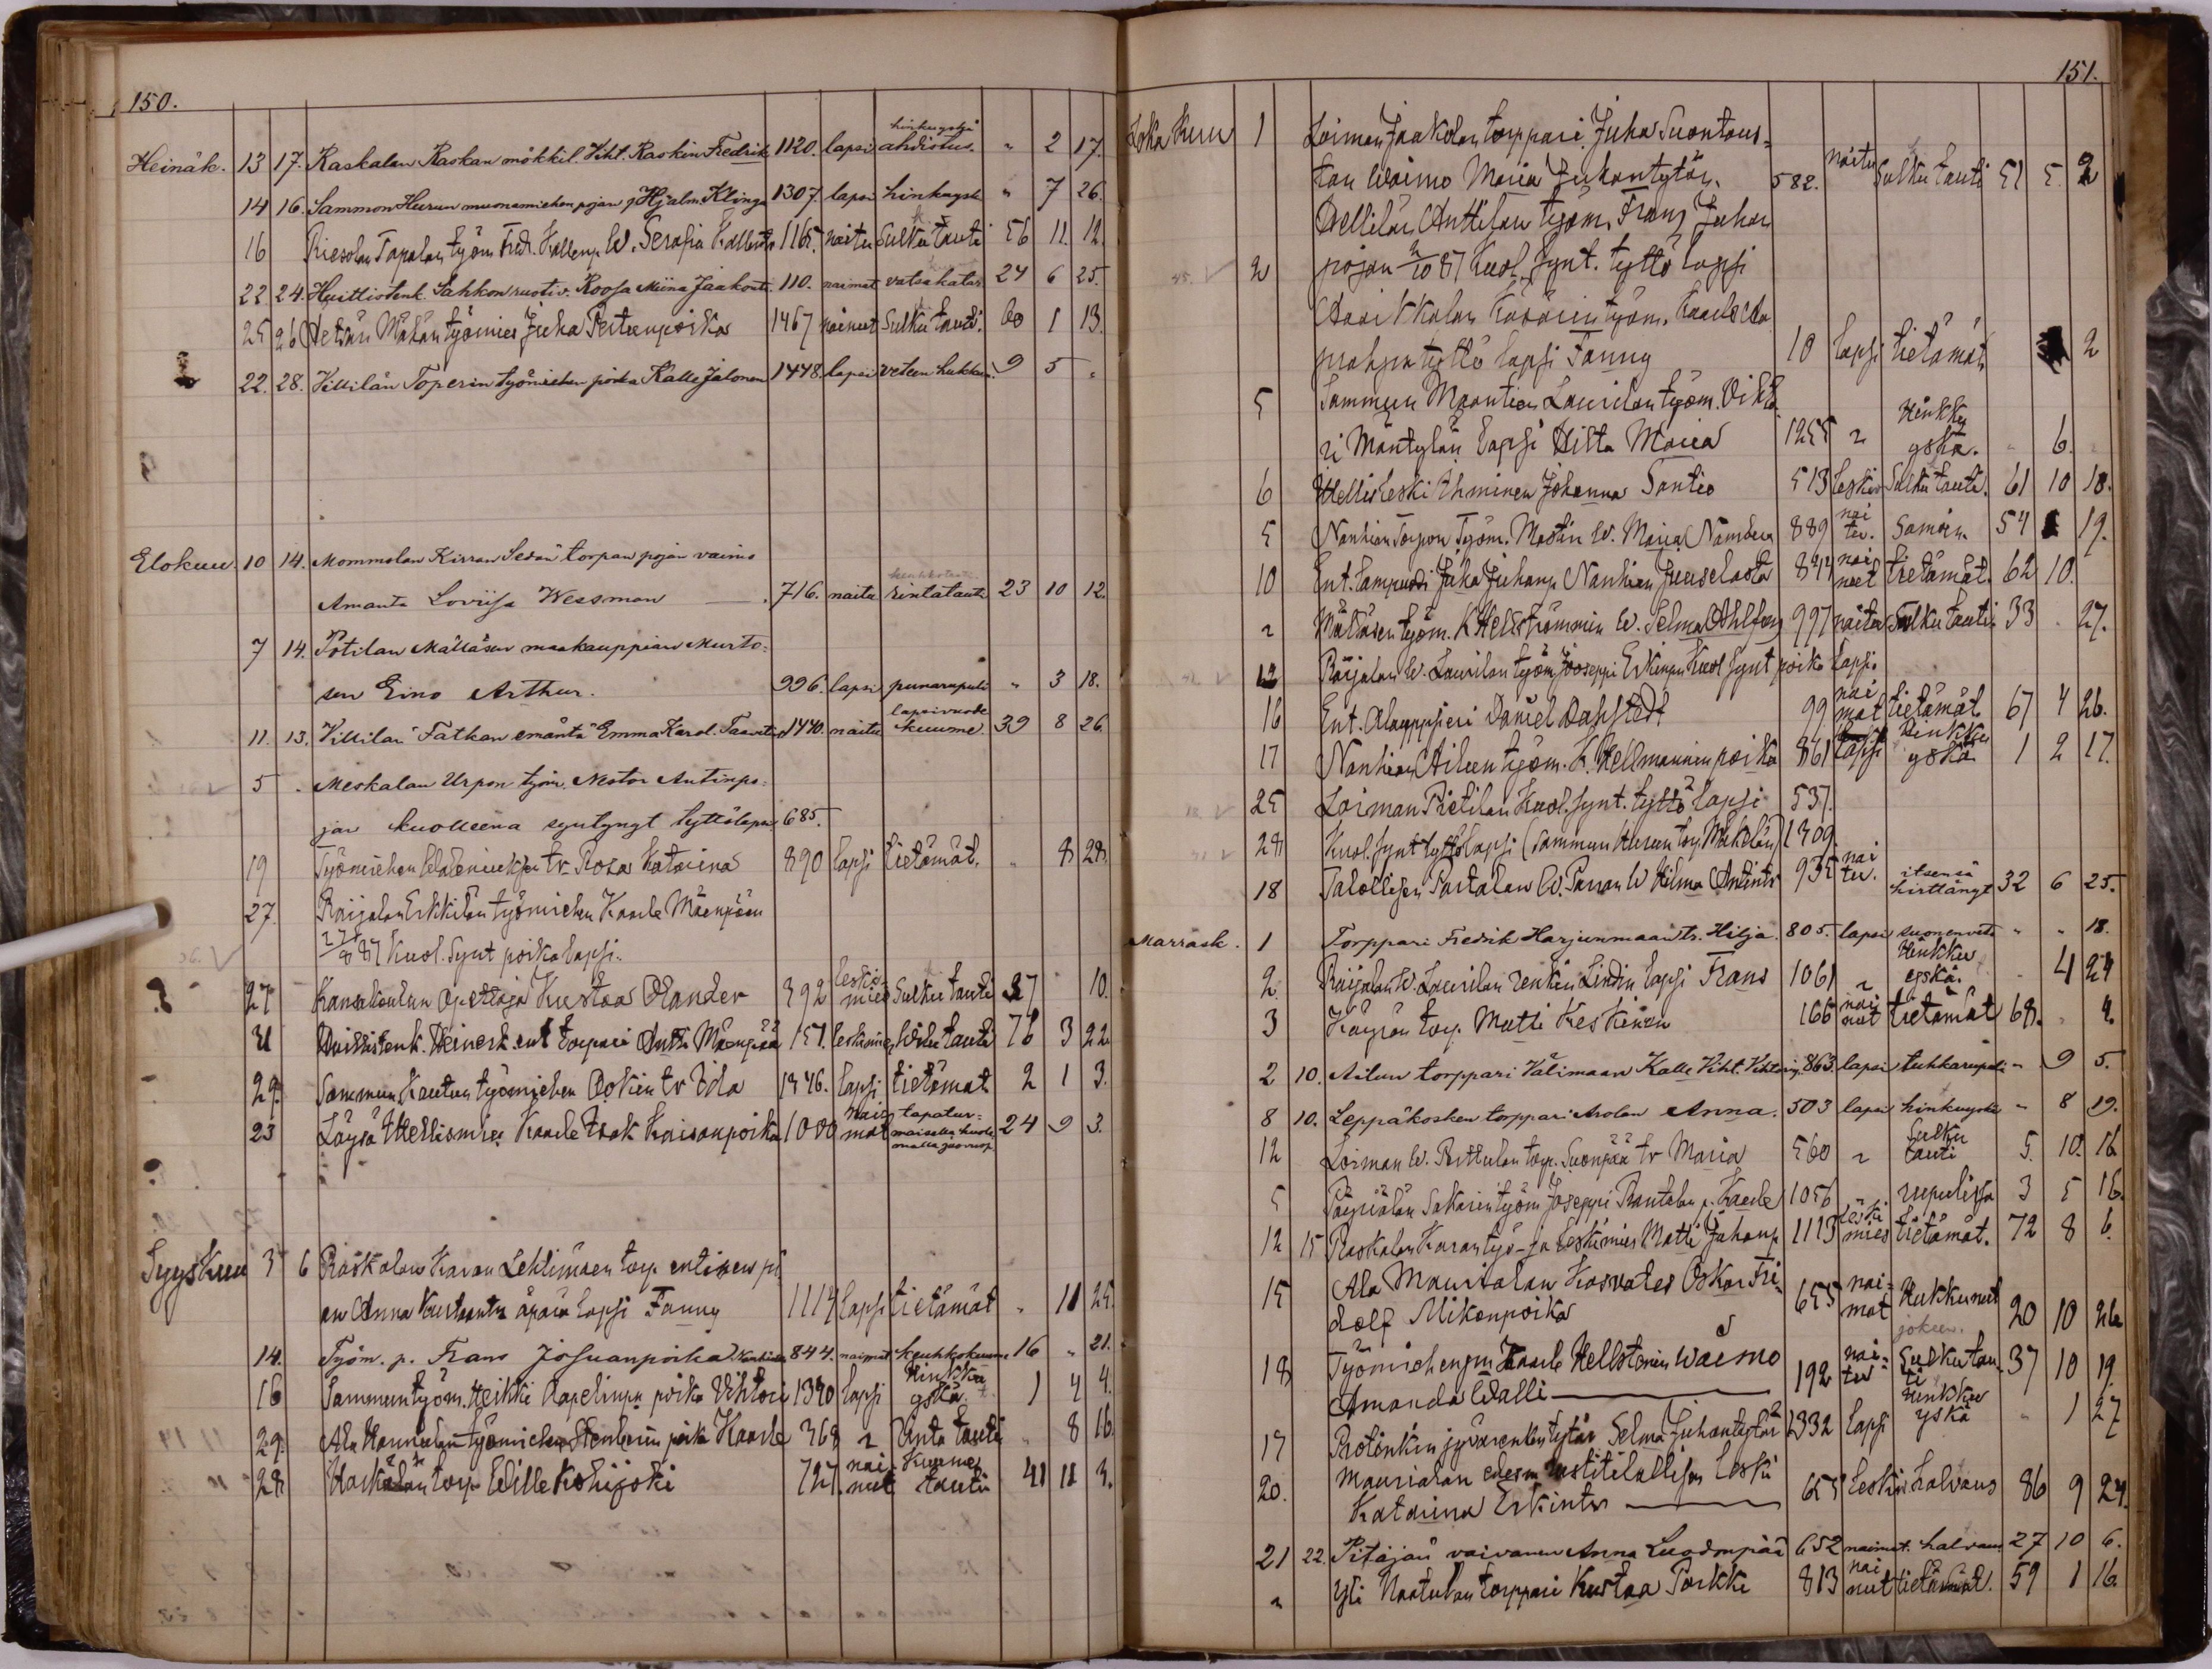 150.
Heinäk. 13 17. Raskalan Raskan mökkil. Viht. Raskin Fredrik 1120. lapsi hinkuyskä ahdistus. " 2 17.
14 16. Sammon Hurun muonamiehen pojan p. Hjalm. Klinga 1307. lapsi hinkuysk " 7 26.
16 työm. Fredr. W. Serafia 1165. naitu Sulku tauti 56 11. 12.
22 24. Huittistenk. Sahkon ruotiv. Roosa Miina Jaakontr. 110. naimat. vatsakatar. 24 6 25.
25 26 Mäkän työmies Juha Pertunpoika 1467 nainut Sulku tauti. 60 1 13.
22. 28. Villilän Toperin työmiehen poika Kalle Jalonen 1448. lapsi veteen hukkun. 9 5 "
Elokuu. 10 14. Mommolan Kirran Sedän torpan pojan vaimo
Amanta Loviisa Wessman 716. naitu keuhkotauti rintatauti 23 10 12.
7 14. Potilan Mälläsen maakauppian Murto-
sen Eino Arthur. 996. lapsi punarupuli " 3 18.
11. 13. Villilän Fatkan emäntä Emma Karol. Taavetintr 1440. naitu lapsivuode kuume 39 8 26.
5 . Meskalan Urpon työm. Nestor Antinpo-
jan kuolleena syntynyt tyttölapsi 685.
19 Työmiehen tr. Rosa Katarina 890 lapsi tietämät. " 8 28.
27. Raijalan Erkkilän työmiehen Kaarle Mäenpään
27/8 87 Kuol. Synt poika lapsi.
27 Kansakoulun Opettaja Kustaa Olander 392 leski- mies Sulku tauti 37 10.
31 Huittistenk. ent torpari Antti Mäenpää 151. leskimies tauti 76 3 22
29. Sammun Kautun työmiehen tr Ida 1346. lapsi tietämät 2 1 3.
23 Löysä Itellismies Kaarle Isak Kaisanpoika 1000 nai- mat tapatur- maisella kuole- malla 24 9 3.
Syyskuu 3 6 Raskalan Karan Lehtimäen torp. entisen pi-
an Anna Kustaantr äpärä lapsi Fanny 1117 lapsi tietämät " 11 25.
14. Työm. p. Frans Josuanpoika 844. naimat keuhkokuume 16 " 21.
16 Sammun työm. Heikki Kapelinpn poika Vihtori 1390 lapsi Hinkku yskä. 1 4 4.
29. Ala työmiehen Stenbergin poika Kaarle 368 " tauti " 8 16.
28 torp. Wille Kohijoki 727. nai- nut Kuume tauti 41 11 3.
151.
Loka Kuu 1 Loiman Jaakolan torppari Juha Suontaus-
tan Waimo Maria Juhantytär. 582. naitu Sulku tauti 51 5. 2
Anttilan työm. Frans Juhan
2 pojan 2/10 87 Kuol. Synt. tyttö lapsi
työm. Kaarle
tyttö lapsi Fanny 10 lapsi tietämät 2
5 Sammun Maantien Laurilan työm. Vikto
ri Mäntylän lapsi Hilta Maria 1255 " Hinkku yskä. " 6. "
6 Itellis leski Ihminen Johanna Santio 513 leski Sulku tauti. 61 10 18.
5 Nanhian Torpon Työm. Matin W. Maria 889 nai tu. Samoin. 54 19.
10 Ent. Lampuodi Juha Juhanp. Nanhian Juuselasta 842 nai nut tietämät. 62 10.
" Mällösen työm. K Hellströmmin W. Selma Ahlfors 997 naitu Sulku tauti. 33 . 27.
12 Räijalan W. Laurilan työm. Jooseppi Erkinpn Kuol. Synt poika lapsi.
16 Ent. Daniel Dahlstedt 99 nai mat tietämät 67 4 26.
17 Nanhian Aileen työm. K. Hellmannin poika 861 lapsi Hinkku yskä 1 2 17.
25 Loiman Pietilän Kuol. Synt. tyttö lapsi 537.
28 Kuol. Synt tyttö lapsi (Sammun Hurun torp. Mäkelän) 1309
18 Talollisen Sartalan W. Parran W Hilma Antintr 935 nai tu. itsensä hirttänyt 32 6 25.
Marrask. 1 Torppari Fredrik Harjunmaan tr. Hilja. 805. lapsi suonenveto " " 18.
2 Raijalan W. Laurilan renkin Lindin lapsi Frans 1061 " Hinkku yskä. " 4 24
3 Käyrän torp. Matti Keskinen 166 nai nut tietämät 68. " 4
2 10. Ailun torppari Välimaan Kalle Viht. 863. lapsi tuhkarupuli " 9 5.
8 10. Leppäkosken torppari Arolan Anna. 503 lapsi hinkuyskä " 8 19.
12 Loiman W. Perttulan torp. Suonpää tr Maria 560 " Sulku tauti 5. 10. 16
5 Sakarin työm. Joseppi Rantalan p. Kaarle 1056 rupulissa 3 5 16.
12 15 Raskalan Karan työ- ja leskimies Matti Juhanp. 1113 leski mies tietämät. 72 8 6.
15 Ala Maurialan Kasvates Oskar Fri-
dolf Mikonpoika 655 nai- mat Hukkunut jokeen. 20 10 26
18 Työmiehen pn Kaarle Hellstenin Waimo
Amanda Walli 192 nai- tu Sulkutau- ti 37 10 19
17 Rotinkin tytär Selma Juhantytär 1332 lapsi Hinkku yskä " 1 27
20. Maurialan edesm. lestitilallisen leski
Katariina Erkintr 655 leski halvaus 86 9 24.
21 22. Pitäjän vaivanen Anna Luodonpää 652 naimat. halvaus 27 10 6.
" Yli torppari Kustaa Torkki 813 nai nut tietämät. 59 1 16